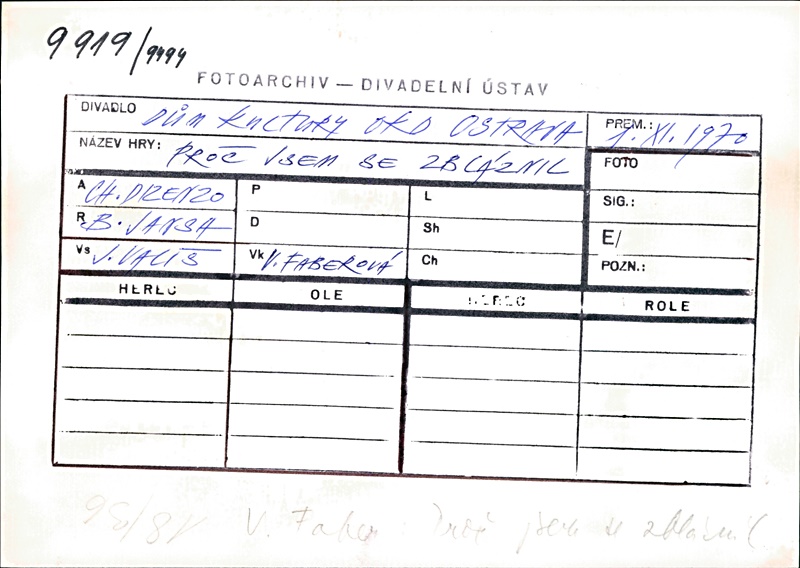 9919/9494
FOTOARCHIV — DIVADELNÍ ÚSTAV
DIVADLO DŮM KULTURY OKD OSTRAVA
PREM.: 1. XI. 1970
NÁZEV HRY: PROČ JSEM SE ZBLÁZNIL
FOTO
A CH. DRENZO P L
SIG.:
R B. JANSA D Sh
E/
Vs J. VALIŠ Vk V. FABEROVÁ Ch
POZN.:
HEREC OLE HEREC ROLE
V. Faber Proč jsem se zbláznil